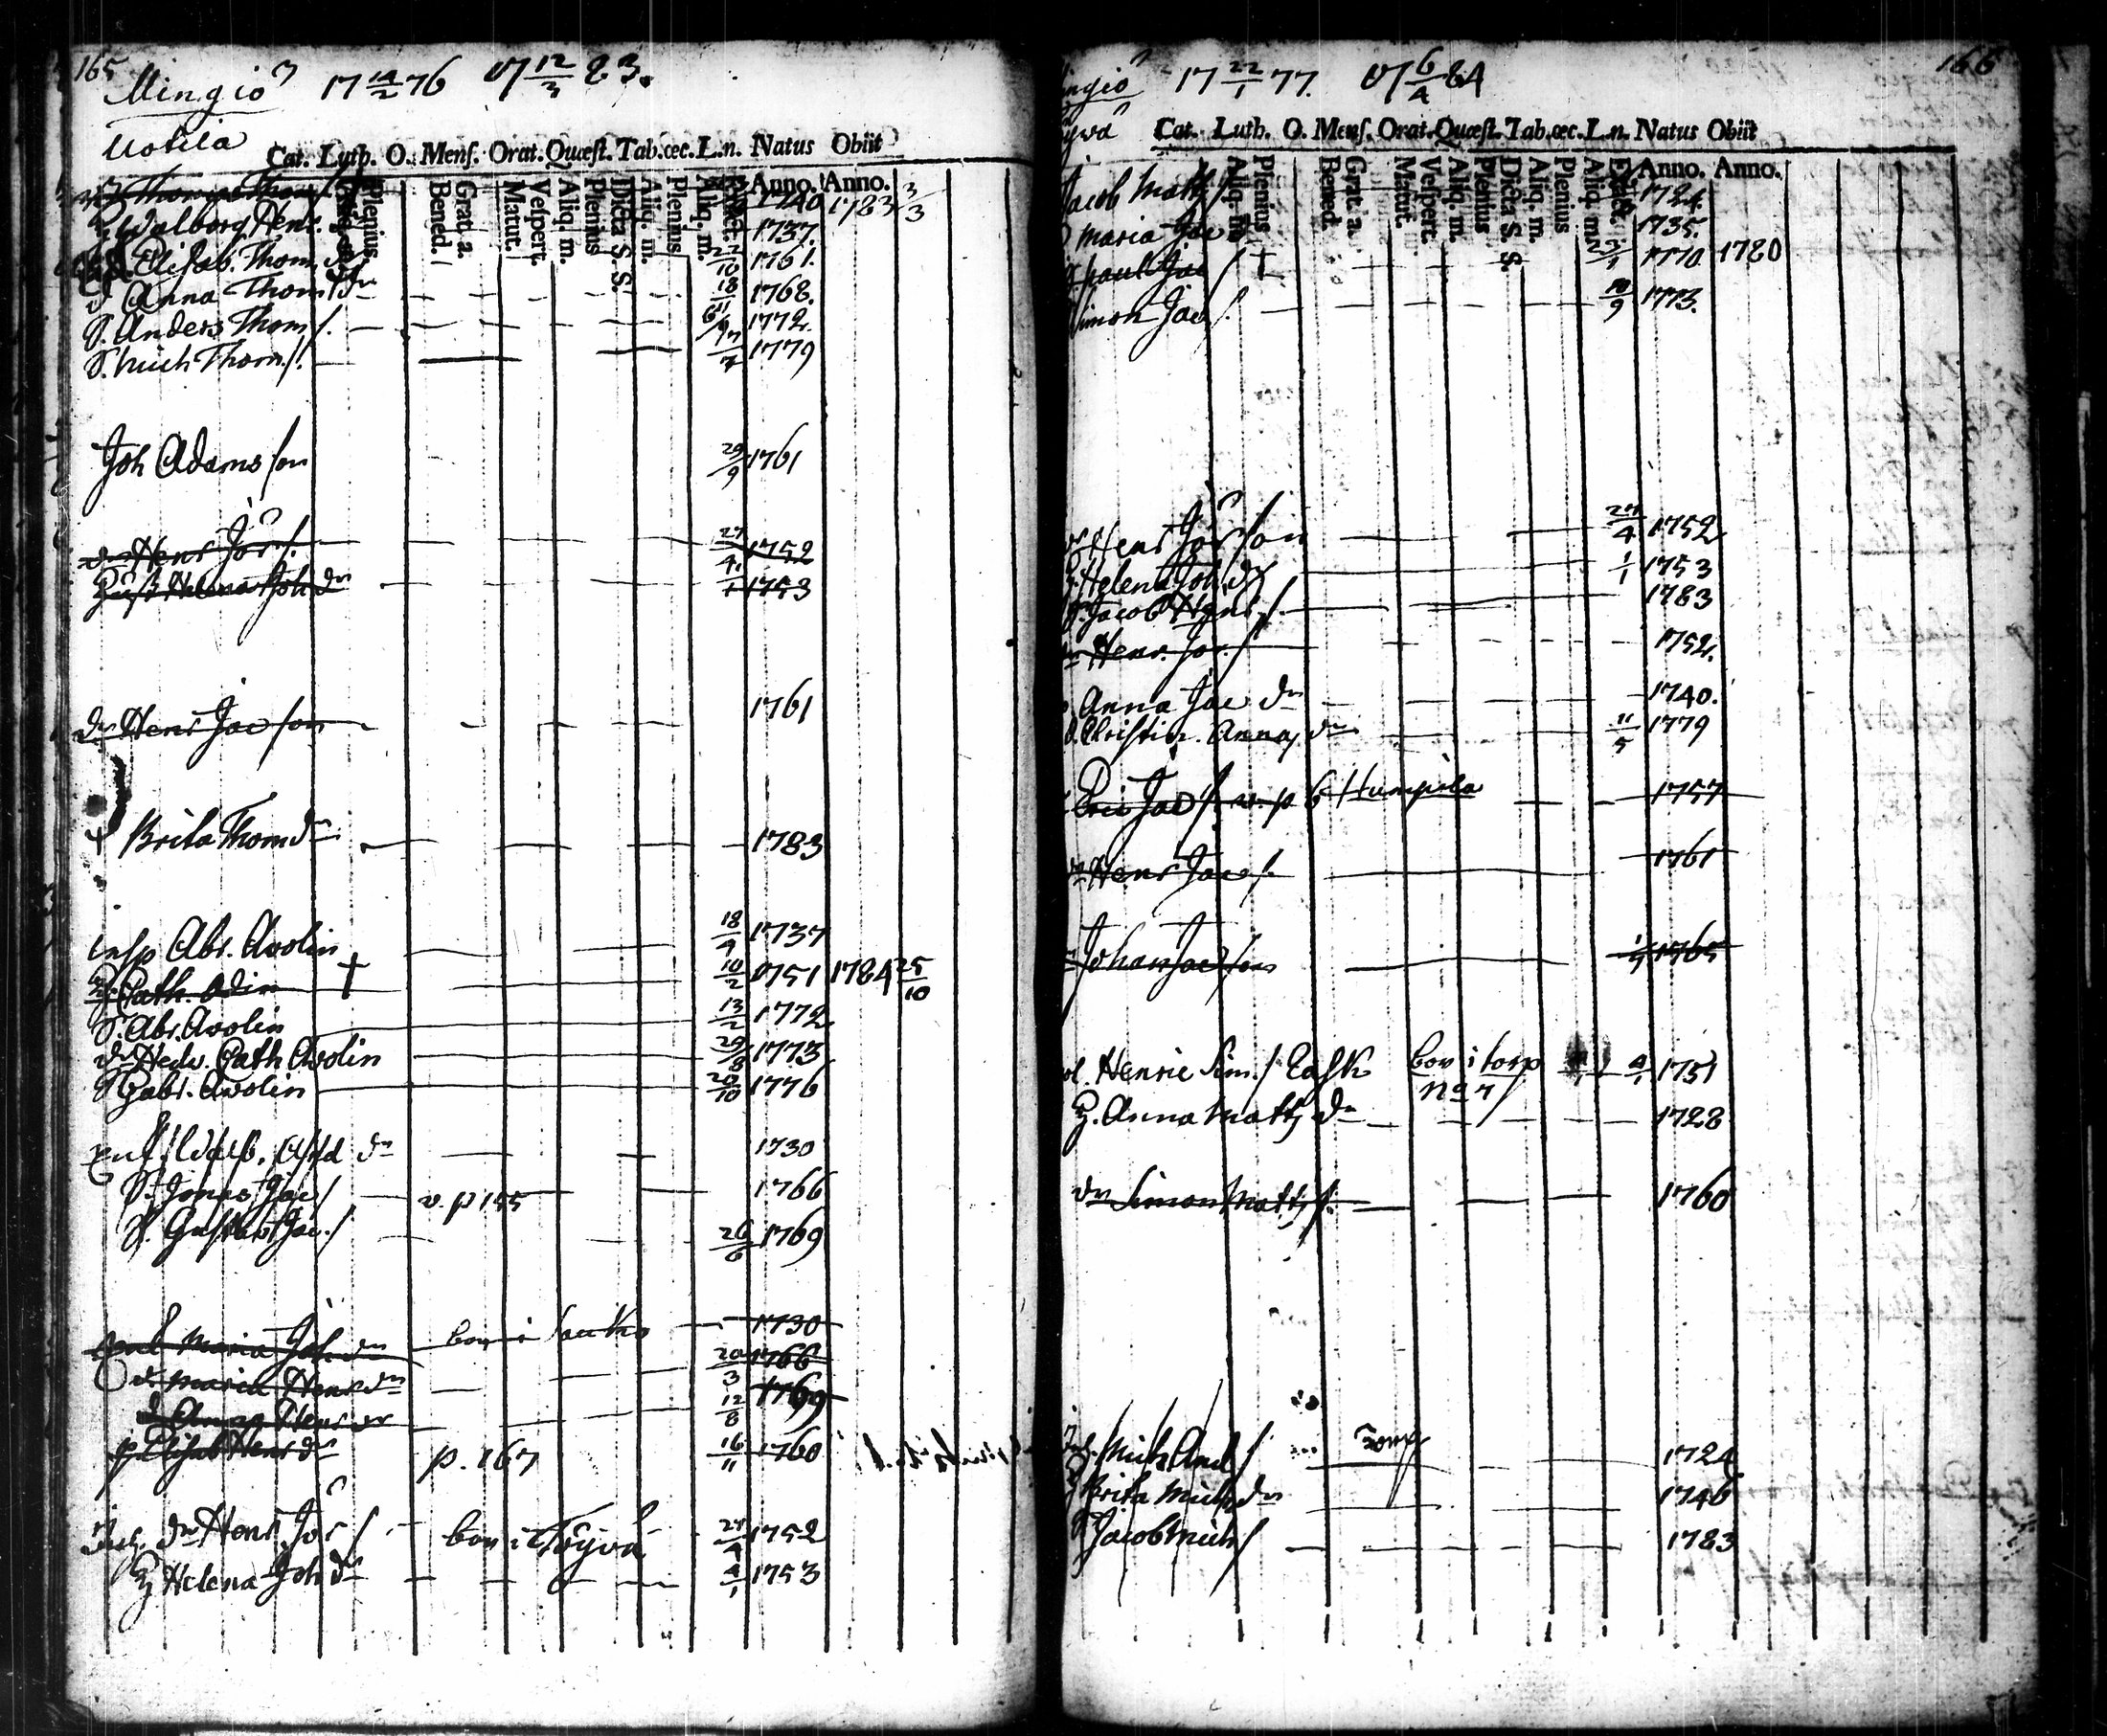 165
Mingiö 17 14/2 76 17 12/3 83.
Uotila
Cat. Luth. O. Mens. Orat. Quæst. Tab. œc. L.n. Natus Obiit
Plenius Bened. Grat. a. Matut. Vespert. Aliq. m. Plenius Dicta S. S. Aliq. m. Plenius Aliq. m. Anno. Anno.
Thomas Thom 1740 1783 3/3
H. Walborg Henr. 1737.
Elisab. Thom dr 2/10 1761.
d. Anna Thom dr 18/ 1768.
S. Anders Thom/. 1772.
S. Mich Thom/. 1779
Joh Adamsson 29/9 1761
dr Henr Jör/. 27/4 1752
Hust Helena Joh dr 1/1 1753
dr Henr Jacsson 1761
Brita Thom dr 1783
insp Abr. Avolin 18/9 1737
H. Cath. Odin † 10/2 1751 1784 25/10
S. Abr. Avolin 13/2 1772
d. Hedv. Cath Avolin 29/8 1773
S Gabr. Avolin 20/10 1776
Enk. Walb. dr 1730
S. Jonas Jac/ v. p 155 1766
S. Gustav Jac./ 26/6 1769
Enk Maria Joh dr bor i 1730
d. Maria Henr dr 20/3 1766
d Anna Henr dr 12/8 1769
p. Elisab Henr dr p. 167 16/11 1760
Inh. dr Henr Jör/ bor i Töyvä 27/4 1752
H Helena Joh dr 4/1 1753
166
ingiö 17 22/1 77. 17 6/4 84
Cat. Luth. O. Mens. Orat. Quæst. Tab. œc. L.n. Natus Obiit
Aliq. m. Plenius Bened. Grat. a. Matut. Vespert. Aliq. m. Plenius Dicta S. S. Aliq. m. Plenius Aliq. m. Anno. Anno.
Jacob Matts/ 1724.
Maria Jac dr 1735.
S paul Jac / † 1770 1780
Simon Jac/. 10/9 1773.
Henr Jörsson 27/4 1752
H. Helena Joh. dr 1/1 1753
S. Jacob Henr/. 1783
Henr. Jör./ 1752.
Anna Jac dr 1740.
d. Christin. Anna dr 11/5 1779
Eric Jac/. v. p 6 Humpila 1757
dr Henr Jac/. 1761
Johan Jacsson 1765
Henric Sim./ Cask bor i torp No 7 4/1 1751
H. Anna Matts dr 1728
dr Simon Matts/. 1760
Inh. Mich And/ 1724
H Brita Mich dr 1746
S Jacob Mich/ 1783